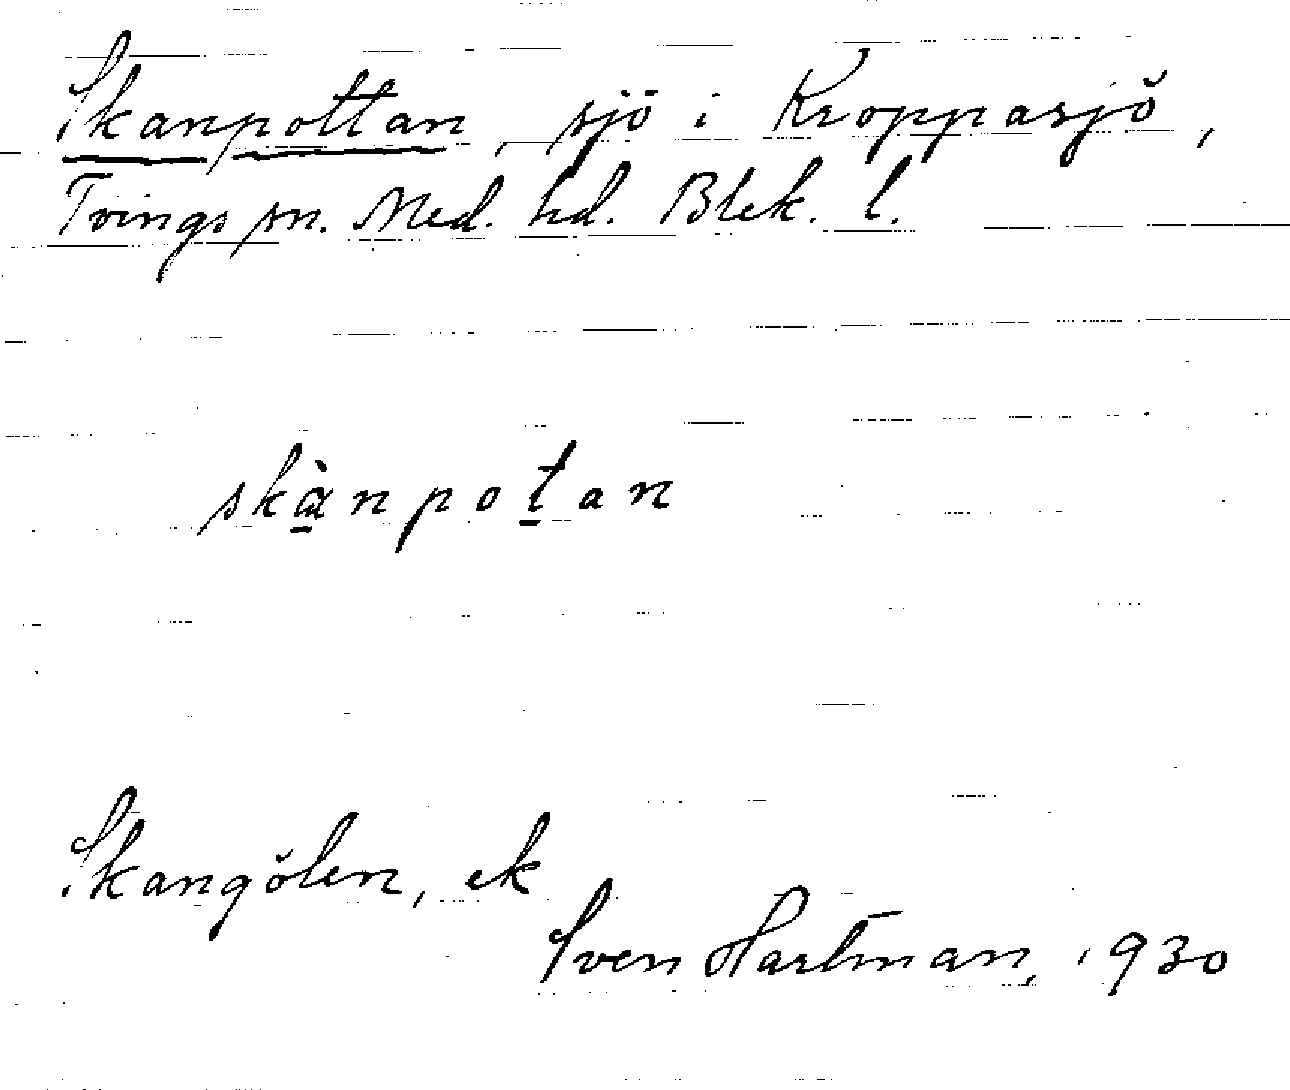 Skanpottan, sjö i Kroppasjö,
Tvings sn. Med. hd. Blek. l.
skànpotan
Skangölen, ek
Sven Hartman, 1930